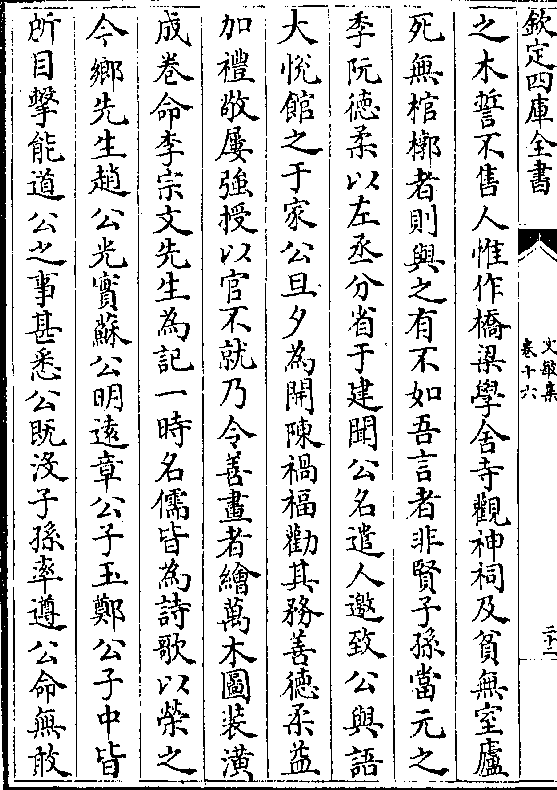 欽定四庫全書
文敏集
卷十六
二十二
之木誓不售人惟作橋梁學舍寺觀神祠及貧無室廬
死無棺槨者則與之有不如吾言者非賢子孫當元之
季阮徳柔以左丞分省于建聞公名遣人邀致公與語
大悦館之于家公旦夕為開陳禍福勸其務善徳柔益
加禮敬屢強授以官不就乃令善畫者繪萬木圖装潢
成卷命李宗文先生為記一時名儒皆為詩歌以榮之
今鄉先生趙公光實蘇公明遠章公子玉鄭公子中皆
所目擊能道公之事甚悉公既沒子孫率遵公命無敢